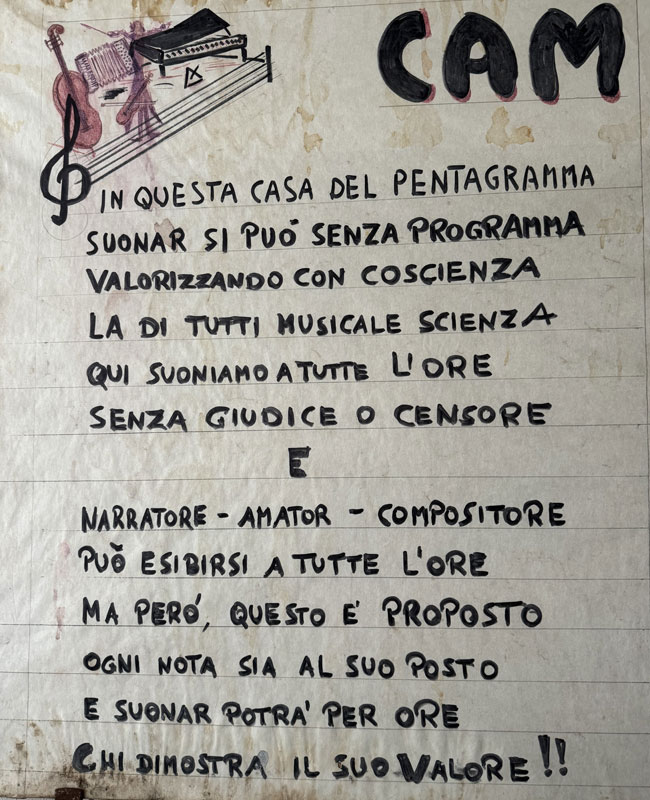 CAM
IN QUESTA CASA DEL PENTAGRAMMA
SUONAR SI PUÒ SENZA PROGRAMMA
VALORIZZANDO CON COSCIENZA
LA DI TUTTI MUSICALE SCIENZA
QUI SUONIAMO A TUTTE L'ORE
SENZA GIUDICE O CENSORE
E
NARRATORE - AMATOR - COMPOSITORE
PUÒ ESIBIRSI A TUTTE L'ORE
MA PERÓ, QUESTO E' PROPOSTO
OGNI NOTA SIA AL SUO POSTO
E SUONAR POTRA' PER ORE
CHI DIMOSTRA IL SUO VALORE!!